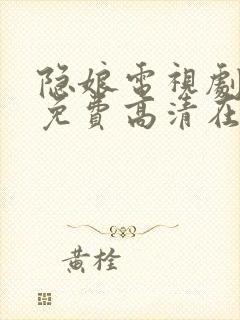 隐娘電視劇
免費高清在
黄栓